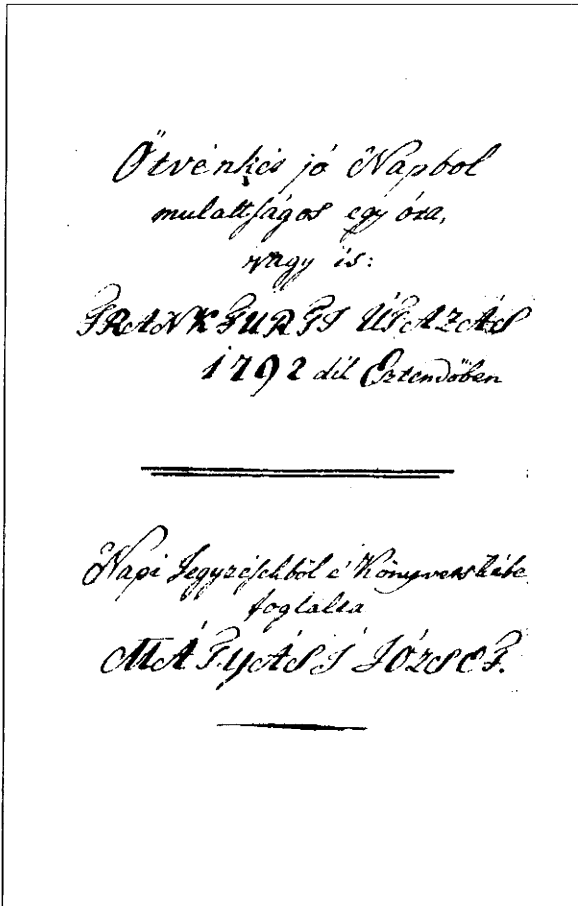 Ötvenkét jó Napbol
mulattságos egy óra,
vagy is:
FRANKFURTI ÚTAZÁS
1792dik Esztendőben
Napi Jegyzésekből é Könyvetskébe
foglalta
MÁTYÁSI JÓZSEF.